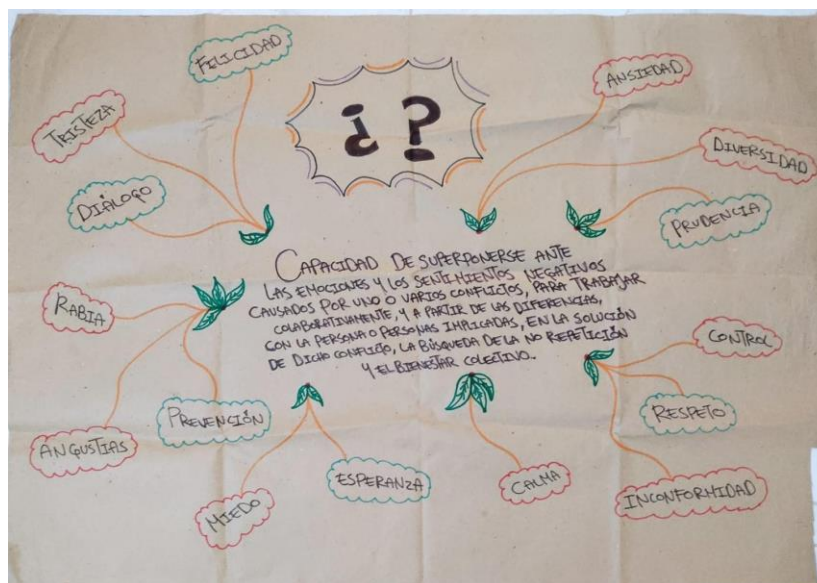 FELICIDAD
TRISTEZA
DIÁLOGO
¿?
ANSIEDAD
DIVERSIDAD
PRUDENCIA
CAPACIDAD DE SUPERPONERSE ANTE
LAS EMOCIONES Y LOS SENTIMIENTOS NEGATIVOS
CAUSADOS POR UNO O VARIOS CONFLICTOS, PARA TRABAJAR
COLABORATIVAMENTE, Y A PARTIR DE LAS DIFERENCIAS,
CON LA PERSONA O PERSONAS IMPLICADAS, EN LA SOLUCIÓN
DE DICHO CONFLICTO, LA BÚSQUEDA DE LA NO REPETICIÓN
Y EL BIENESTAR COLECTIVO.
RABIA
PREVENCIÓN
ANGUSTIAS
MIEDO
ESPERANZA
CALMA
CONTROL
RESPETO
INCONFORMIDAD